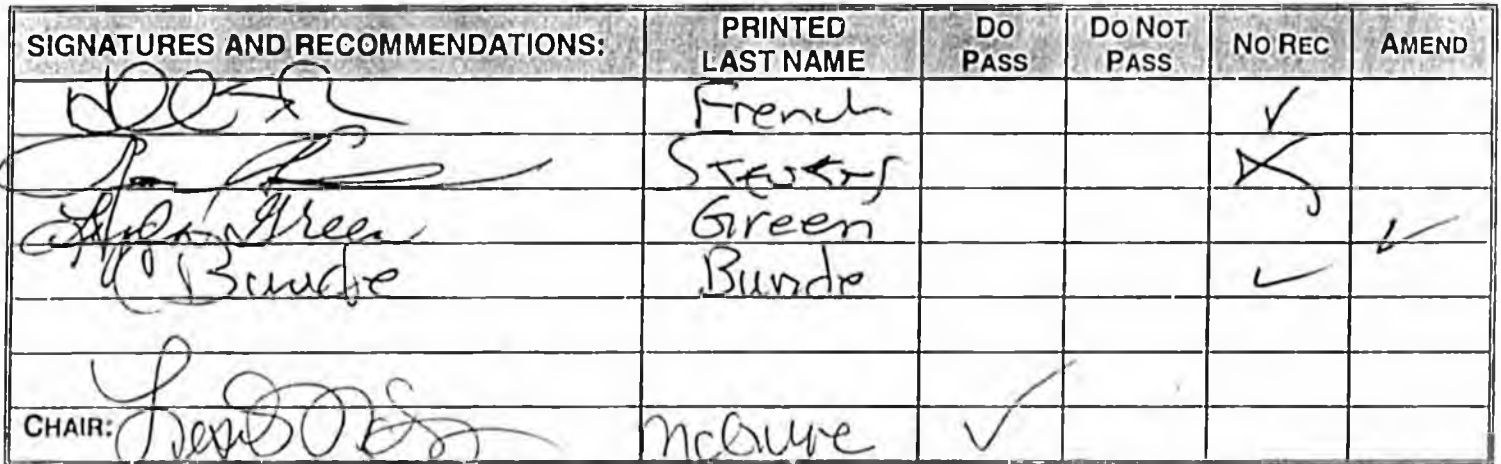 SIGNATURES AND RECOMMENDATIONS: PRINTED LAST NAME DO PASS DO NOT PASS NO REC AMEND
French ✓
Green Green ✓
Bunde Bunde ✓
CHAIR: McGuire ✓